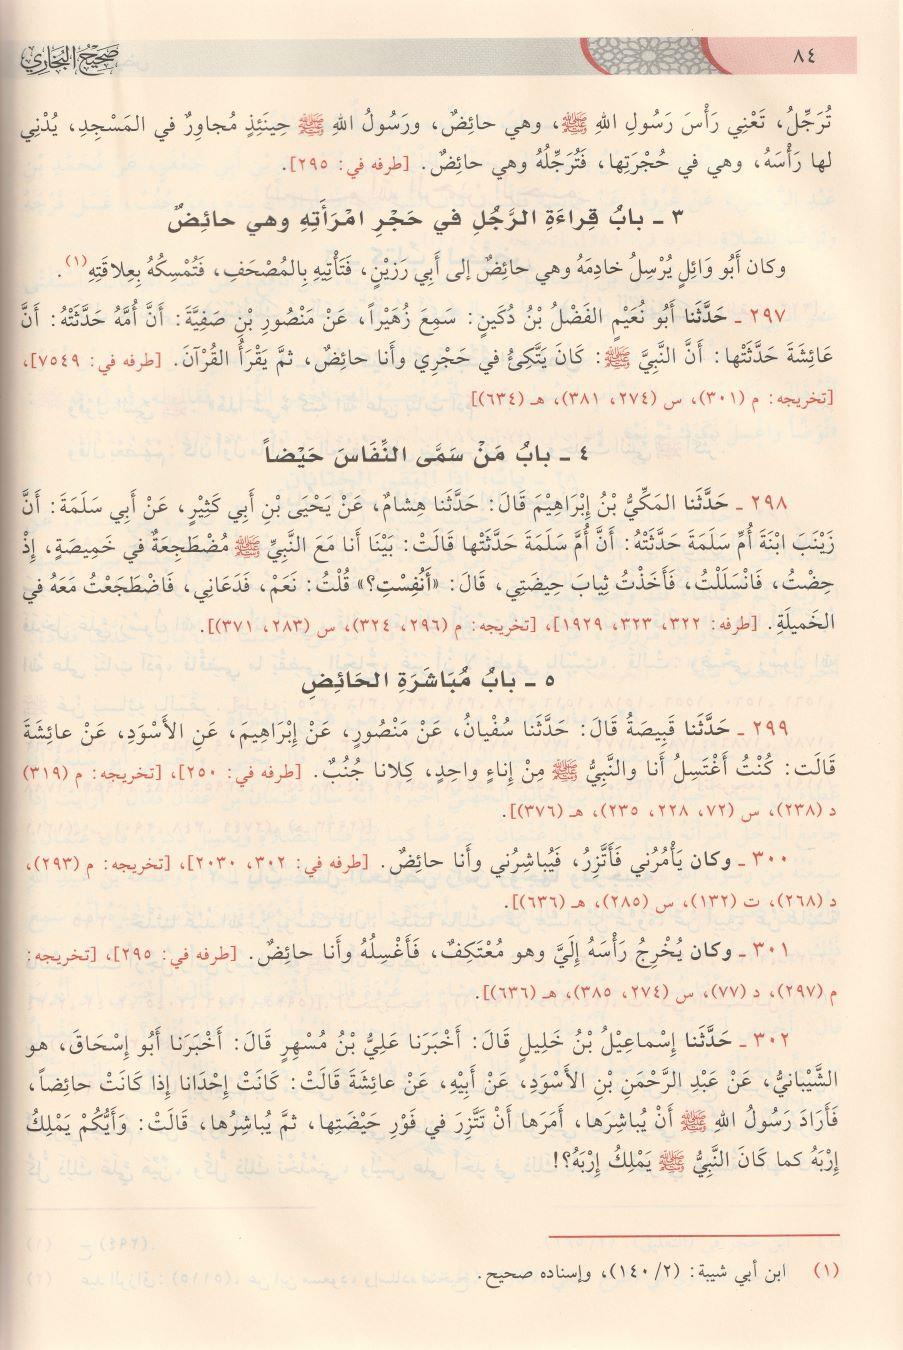 ٨٤
صَحِيْحُ البُخَارِي
تُرَجِّلُ، تَعْنِي رَأْسَ رَسُولِ اللهِ ﷺ، وهي حائِضٌ، ورَسُولُ اللهِ ﷺ حِينَئِذٍ مُجاوِرٌ في المَسْجِدِ، يُدْنِي
لها رَأْسَهُ، وهي في حُجْرَتِها، فَتُرَجِّلُهُ وهي حائِضٌ. [طرفه في: ٢٩٥].
٣ ـ بابُ قِراءَةِ الرَّجُلِ في حَجْرِ امْرَأَتِهِ وهي حائِضٌ
وكان أَبُو وَائِلٍ يُرْسِلُ خادِمَهُ وهي حائِضٌ إلى أَبِي رَزِيْنٍ، فَتَأْتِيهِ بِالمُصْحَفِ، فَتُمْسِكُهُ بِعِلاقَتِهِ(١).
٢٩٧ ـ حَدَّثَنا أَبُو نُعَيْمٍ الفَضْلُ بْنُ دُكَينٍ: سَمِعَ زُهَيْراً، عَنْ مَنْصُورِ بْنِ صَفِيَّةَ: أَنَّ أُمَّهُ حَدَّثَتْهُ: أَنَّ
عَائِشَةَ حَدَّثَتْها: أَنَّ النَّبِيَّ ﷺ: كَانَ يَتَّكِئُ في حَجْرِي وأَنا حائِضٌ، ثمَّ يَقْرَأُ القُرْآنَ. [طرفه في: ٧٥٤٩]،
[تخريجه: م (٣٠١)، س (٢٧٤، ٣٨١)، هـ (٦٣٤)]
٤ ـ بابُ مَنْ سَمَّى النِّفَاسَ حَيْضاً
٢٩٨ ـ حَدَّثَنا المَكِّيُّ بْنُ إِبْرَاهِيْمَ قَالَ: حَدَّثَنا هِشامٌ، عَنْ يَحْيَى بْنِ أَبي كَثِيْرٍ، عَنْ أَبي سَلَمَةَ: أَنَّ
زَيْنَبَ ابْنَةَ أُمِّ سَلَمَةَ حَدَّثَتْهُ: أَنَّ أُمَّ سَلَمَةَ حَدَّثَتْها قالَتْ: بَيْنَا أَنا مَعَ النَّبِيِّ ﷺ مُضْطَجِعَةٌ في خَمِيصَةٍ، إِذْ
حِضْتُ، فَانْسَلَلْتُ، فَأَخَذْتُ ثِيابَ حِيضَتِي، قَالَ: «أَنُفِسْتِ؟» قُلْتُ: نَعَمْ، فَدَعَانِي، فَاضْطَجَعْتُ مَعَهُ في
الخَمِيلَةِ. [طرفه: ٣٢٢، ٣٢٣، ١٩٢٩]، [تخريجه: م (٢٩٦، ٣٢٤)، س (٢٨٣، ٣٧١)].
٥ ـ بابُ مُبَاشَرَةِ الحَائِضِ
٢٩٩ ـ حَدَّثَنا قَبِيصَةُ قَالَ: حَدَّثَنا سُفْيانُ، عَنْ مَنْصُورٍ، عَنْ إِبْرَاهِيمَ، عَنِ الأَسْوَدِ، عَنْ عائِشَةَ
قَالَت: كُنْتُ أَغْتَسِلُ أَنا والنَّبِيُّ ﷺ مِنْ إِناءٍ واحِدٍ، كِلانا جُنُبٌ. [طرفه في: ٢٥٠]، [تخريجه: م (٣١٩)
د (٢٣٨)، س (٧٢، ٢٢٨، ٢٣٥)، هـ (٣٧٦)].
٣٠٠ ـ وكان يَأْمُرُني فَأَتَّزِرُ، فَيُباشِرُني وأَنا حائِضٌ. [طرفه في: ٣٠٢، ٢٠٣٠]، [تخريجه: م (٢٩٣)،
د (٢٦٨)، ت (١٣٢)، س (٢٨٥)، هـ (٦٣٦)].
٣٠١ ـ وكان يُخْرِجُ رَأْسَهُ إِلَيَّ وهو مُعْتَكِفٌ، فَأَغْسِلُهُ وأَنا حائِضٌ. [طرفه في: ٢٩٥]، [تخريجه:
م (٢٩٧)، د (٧٧)، س (٢٧٤، ٣٨٥)، هـ (٦٣٦)].
٣٠٢ ـ حَدَّثَنا إِسْماعِيْلُ بْنُ خَلِيلٍ قَالَ: أَخْبَرَنا عَلِيُّ بْنُ مُسْهِرٍ قَالَ: أَخْبَرَنا أَبُو إِسْحَاقَ، هو
الشَّيْبانيُّ، عَنْ عَبْدِ الرَّحْمَنِ بْنِ الأَسْوَدِ، عَنْ أَبِيْهِ، عَنْ عَائِشَةَ قَالَتْ: كَانَتْ إِحْدَانا إِذَا كَانَتْ حائِضاً،
فَأَرَادَ رَسُولُ اللهِ ﷺ أَنْ يُباشِرَها، أَمَرَها أَنْ تَتَّزِرَ في فَوْرِ حَيْضَتِها، ثمَّ يُباشِرُها، قَالَتْ: وَأَيُّكُمْ يَمْلِكُ
إِرْبَهُ كما كَانَ النَّبِيُّ ﷺ يَمْلِكُ إِرْبَهُ؟!
(١) ابن أبي شيبة: (١٤٠/٢)، وإسناده صحيح.